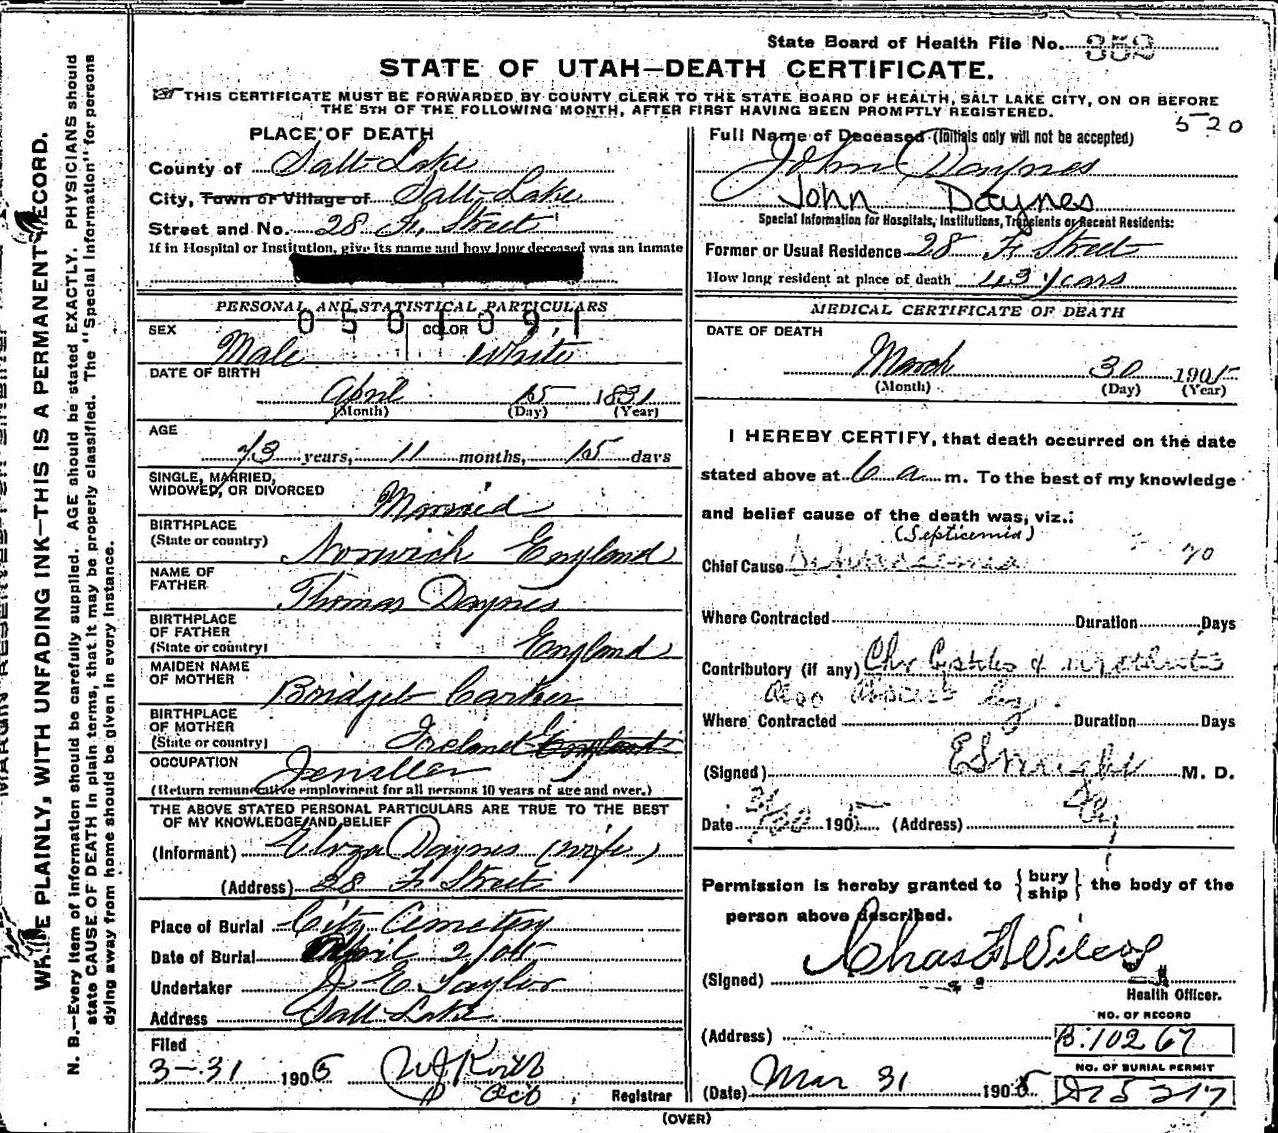 State Board of Health File No. 352
STATE OF UTAH—DEATH CERTIFICATE.
THIS CERTIFICATE MUST BE FORWARDED BY COUNTY CLERK TO THE STATE BOARD OF HEALTH, SALT LAKE CITY, ON OR BEFORE
THE 5TH OF THE FOLLOWING MONTH, AFTER FIRST HAVING BEEN PROMPTLY REGISTERED.
520
WRITE PLAINLY, WITH UNFADING INK—THIS IS A PERMANENT RECORD.
N. B.—Every item of information should be carefully supplied. AGE should be stated EXACTLY. PHYSICIANS should
state CAUSE OF DEATH in plain terms, that it may be properly classified. The "Special Information" for persons
dying away from home should be given in every instance.
PLACE OF DEATH
County of Salt Lake
City, Town or Village of Salt Lake
Street and No. 28 F. Street
If in Hospital or Institution, give its name and how long deceased was an inmate
PERSONAL AND STATISTICAL PARTICULARS
0501091
SEX Male COLOR White
DATE OF BIRTH
April 15 1831
(Month) (Day) (Year)
AGE
73 years, 11 months, 15 days
SINGLE, MARRIED,
WIDOWED, OR DIVORCED Married
BIRTHPLACE
(State or country) Norwich England
NAME OF
FATHER Thomas Daynes
BIRTHPLACE
OF FATHER
(State or country) England
MAIDEN NAME
OF MOTHER Bridget Carter
BIRTHPLACE
OF MOTHER
(State or country) Ireland England
OCCUPATION Jeweller
(Return remunerative employment for all persons 10 years of age and over.)
THE ABOVE STATED PERSONAL PARTICULARS ARE TRUE TO THE BEST
OF MY KNOWLEDGE AND BELIEF
(Informant) Eliza Daynes (wife)
(Address) 28 F Street
Place of Burial City Cemetery
Date of Burial April 2/05
Undertaker E Taylor
Address Salt Lake
Filed
3-31 1905
Registrar
Full Name of Deceased (Initials only will not be accepted)
John Daynes
John Daynes
Special Information for Hospitals, Institutions, Transients or Recent Residents:
Former or Usual Residence 28 F Street
How long resident at place of death 43 years
MEDICAL CERTIFICATE OF DEATH
DATE OF DEATH
March 30 1905
(Month) (Day) (Year)
I HEREBY CERTIFY, that death occurred on the date
stated above at 6 a m. To the best of my knowledge
and belief cause of the death was, viz.:
(Septicemia)
Chief Cause 20
Where Contracted Duration Days
Contributory (if any) Chr
also
Where Contracted Duration Days
(Signed) M. D.
Date 1905 (Address)
Permission is hereby granted to { bury ship } the body of the
person above described.
(Signed) Chas Wilcox
Health Officer.
NO. OF RECORD
(Address) B. 10267
NO. OF BURIAL PERMIT
(Date) Mar 31 1905
(OVER)